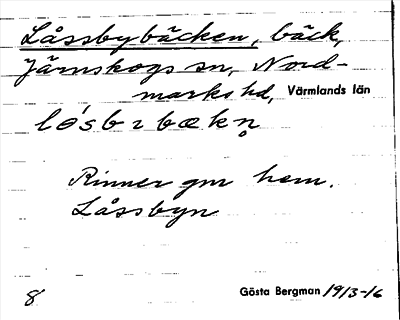 Låssbybäcken, bäck,
Järnskogs sn, Nord-
marks hd, Värmlands län
lósbꞮbækn̥
Rinner gm hem.
Låssbyn
8 Gösta Bergman 1913-16